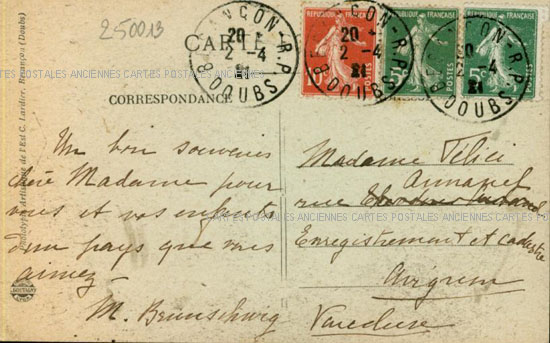 250013
CARTE
BESANÇON-R.P.
20
2-4
21
DOUBS
RÉPUBLIQUE FRANÇAISE
10c
POSTES
5c
POSTES
5c
POSTES
CORRESPONDANCE
CARTES POSTALES ANCIENNES CARTES POSTALES ANCIENNES CARTES POSTALES ANCIENNES
Phototypie Artistique de l'Est C. Lardier, Besançon (Doubs)
Un bon souvenir
chère Madame pour
vous et vos enfants
d'un pays que vous
aimez
M. Brunschwig
Madame Félix
rue
Enregistrement et Cadastre
Avignon
Vaucluse